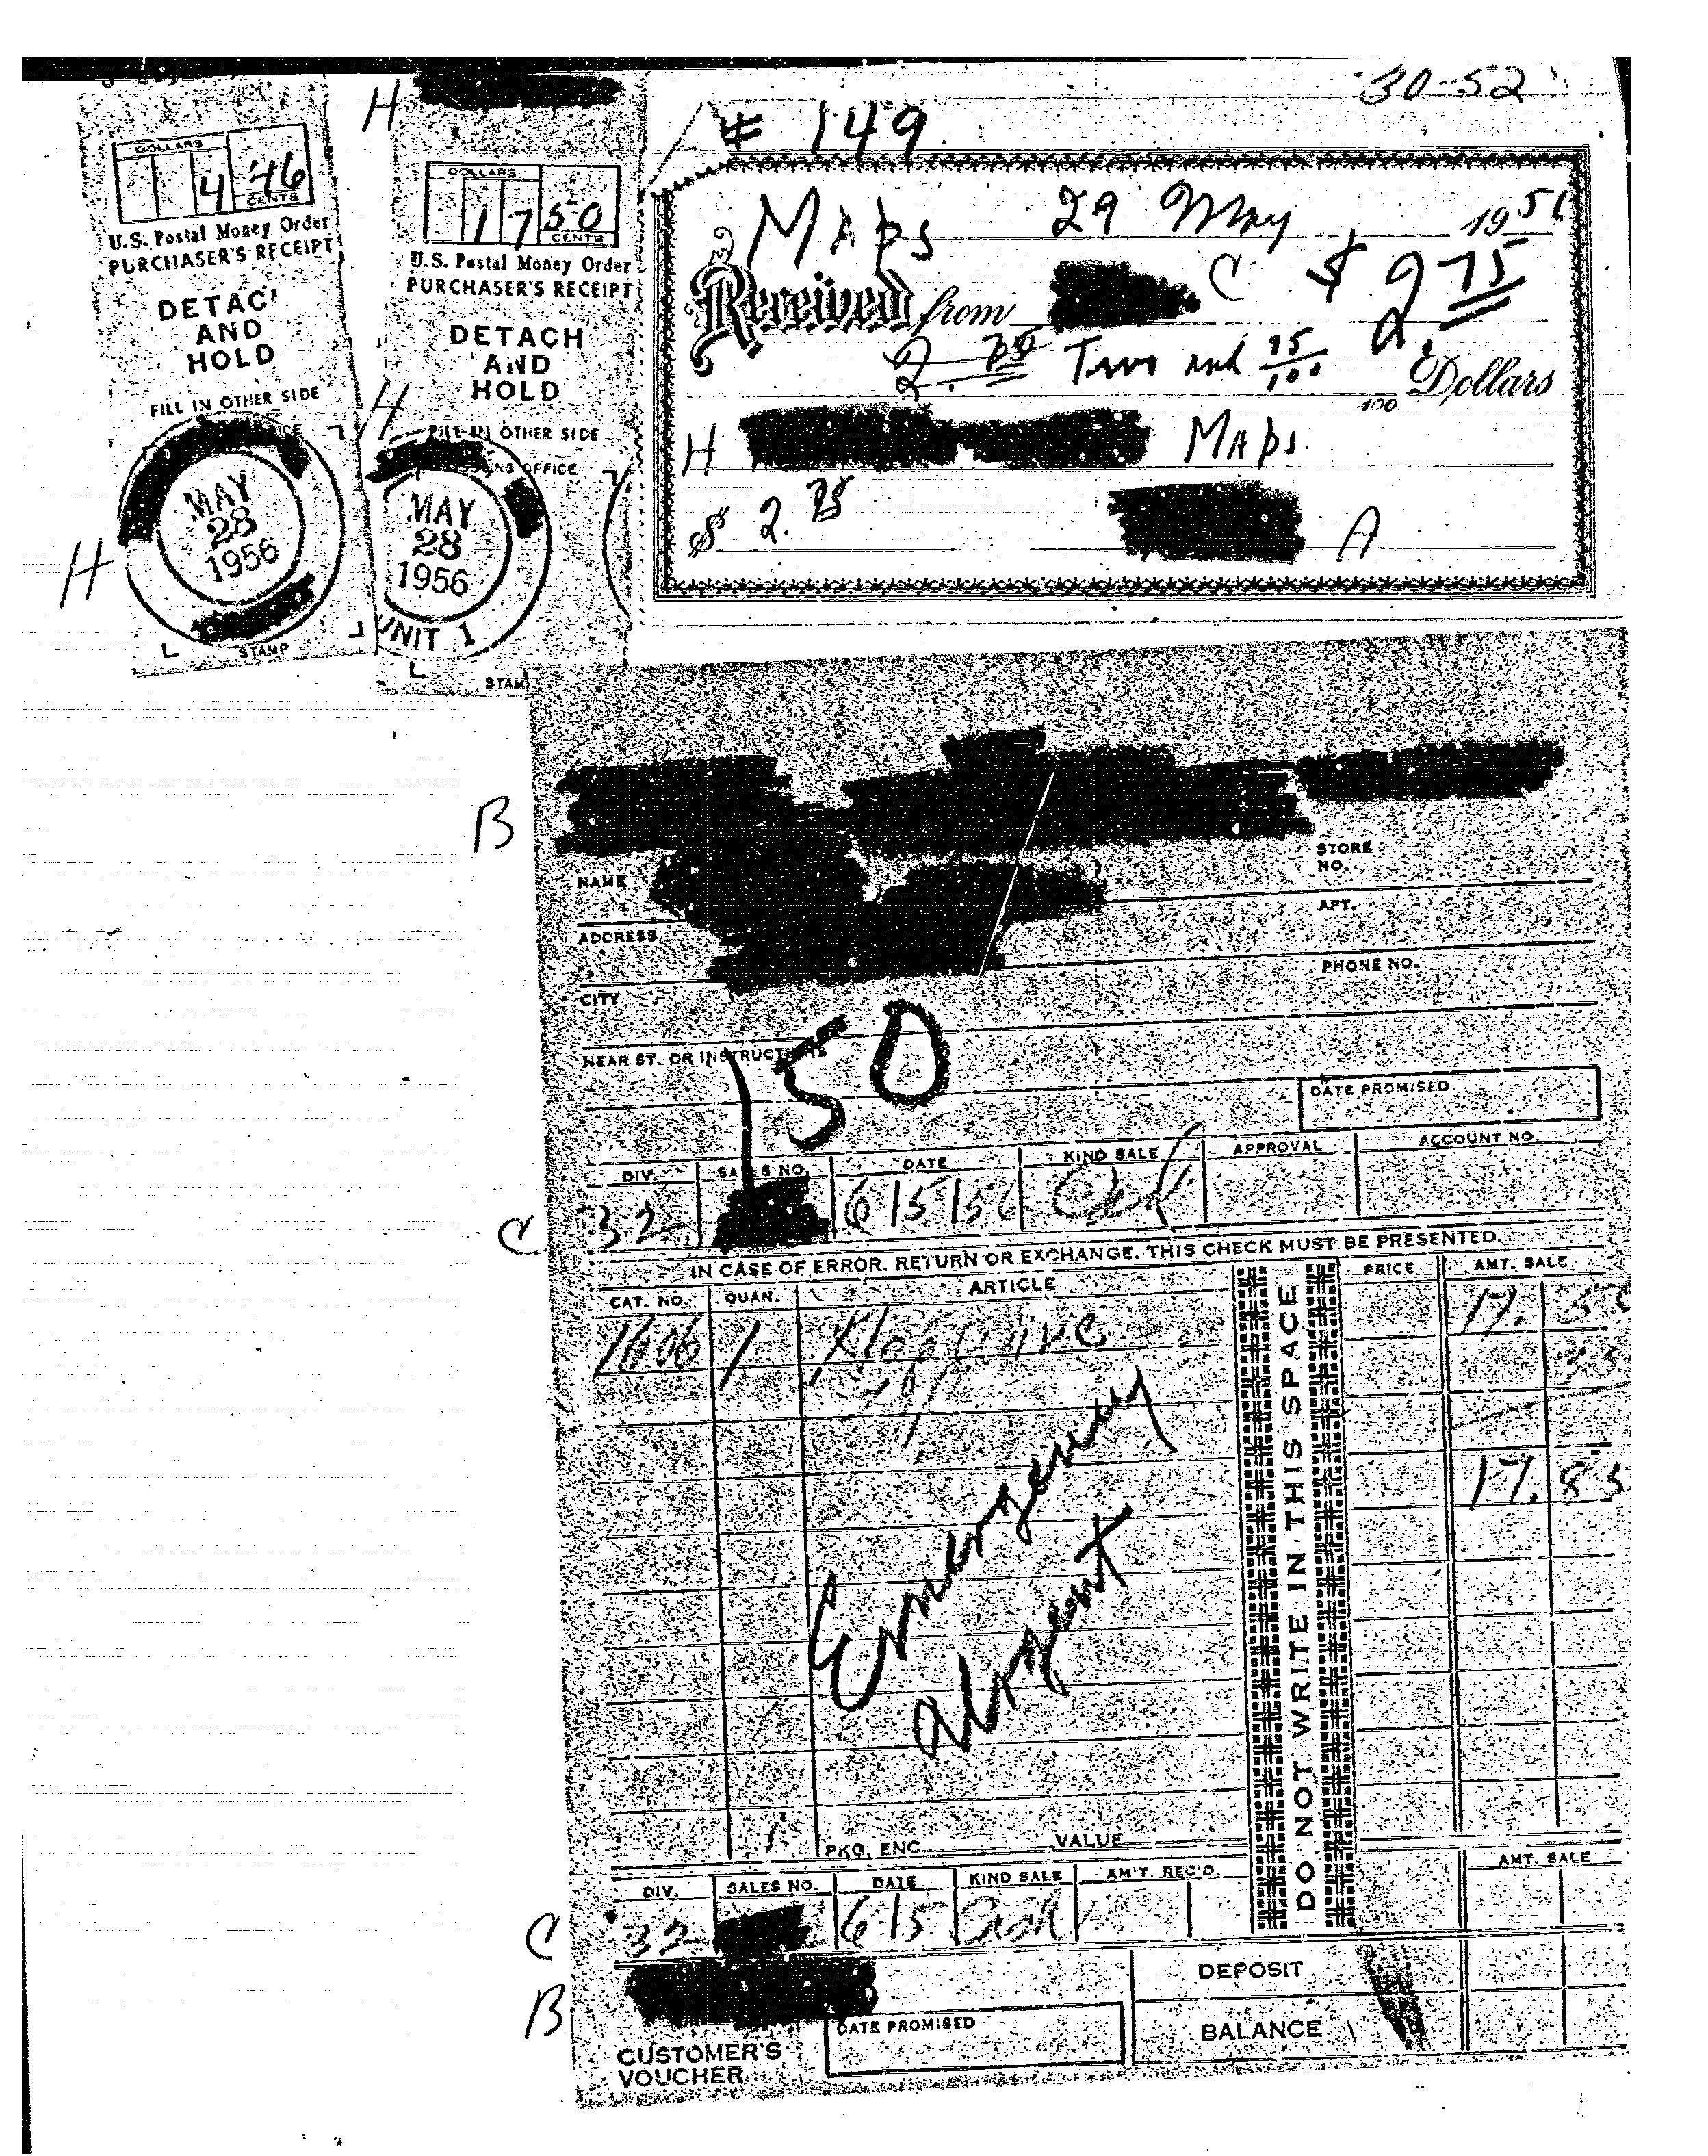 30-52
H
DOLLARS
4 46
CENTS
U.S. Postal Money Order
PURCHASER'S RECEIPT
DETAC'
AND
HOLD
FILL IN OTHER SIDE
MAY
28
1956
H
STAMP
DOLLARS
17 50
CENTS
U.S. Postal Money Order
PURCHASER'S RECEIPT
DETACH
AND
HOLD
H
FILL IN OTHER SIDE
ING OFFICE
MAY
28
1956
UNIT 1
STAM
# 149
Maps 29 May 1956
Received from C $ 2.75
2.75 Two and 75/100 Dollars
100
H Maps.
$ 2.75
A
B
STORE
NO.
NAME
APT.
ADDRESS
PHONE NO.
CITY
150
NEAR ST. OR INSTRUCTIONS
DATE PROMISED
DIV. SALES NO. DATE KIND SALE APPROVAL ACCOUNT NO.
C 32 6 15 56
IN CASE OF ERROR, RETURN OR EXCHANGE, THIS CHECK MUST BE PRESENTED.
CAT. NO. QUAN. ARTICLE PRICE AMT. SALE
1606 1 17.
17.85
Emergency
Urgent
DO NOT WRITE IN THIS SPACE
PKG. ENC. VALUE
DIV. SALES NO. DATE KIND SALE AM'T. REC'D. AMT. SALE
C 32 6 15 Cash
DEPOSIT
B
DATE PROMISED
BALANCE
CUSTOMER'S
VOUCHER